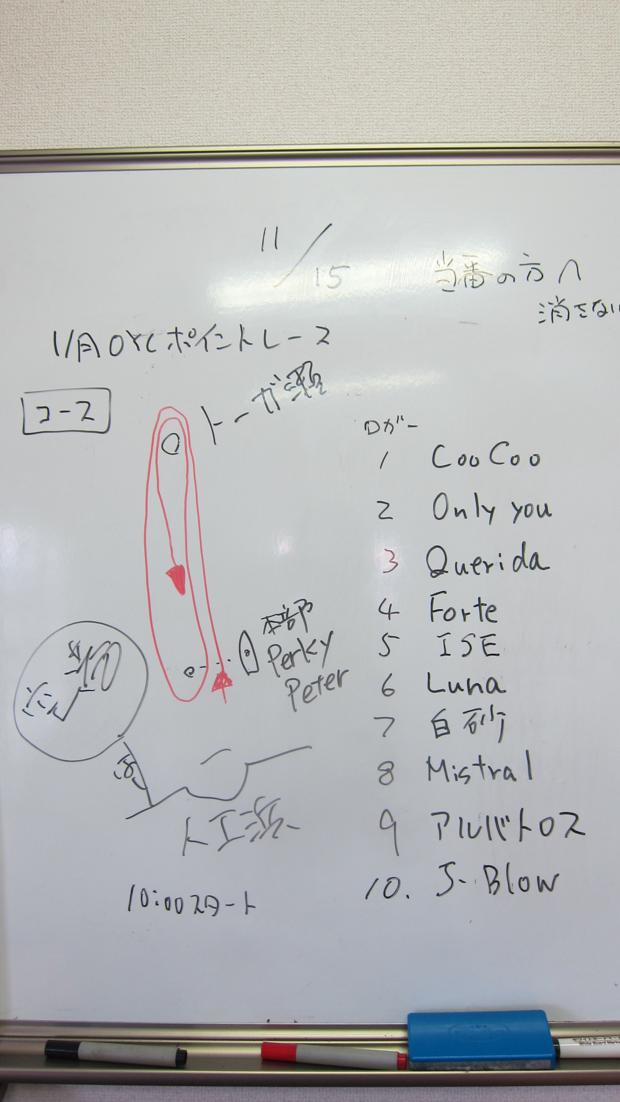 11/15
当番の方へ
消さない
11月OYCポイントレース
コース
トーガ瀬
本部
Perky
Peter
10:00スタート
1 CooCoo
2 Only you
3 Querida
4 Forte
5 ISE
6 Luna
7 白砂
8 Mistral
9 アルバトロス
10. J-Blow